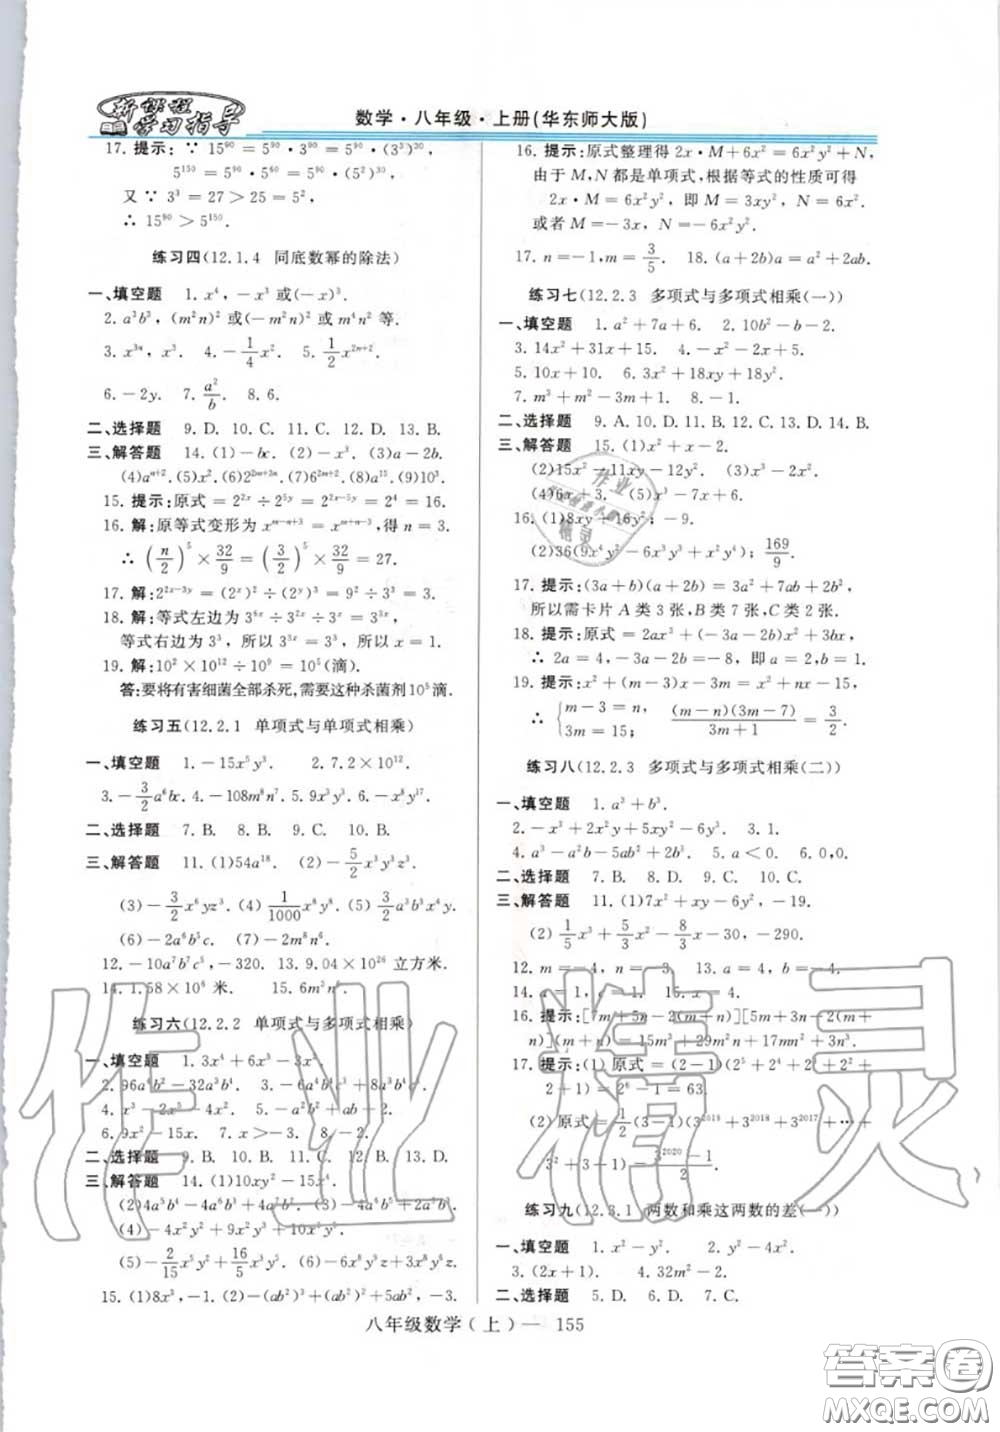 新课程学习指导
数学·八年级·上册(华东师大版)
17. 提示: ∵ 15⁹⁰ = 5⁹⁰ · 3⁹⁰ = 5⁹⁰ · (3³)³⁰,
5¹⁵⁰ = 5⁹⁰ · 5⁶⁰ = 5⁹⁰ · (5²)³⁰,
又 ∵ 3³ = 27 > 25 = 5²,
∴ 15⁹⁰ > 5¹⁵⁰.
练习四(12.1.4 同底数幂的除法)
一、填空题 1. x⁴, -x³ 或(-x)³.
2. a³b³, (m²n)² 或(-m²n)² 或 m⁴n² 等.
3. x³ⁿ, x³. 4. -1/4 x². 5. 1/2 x²ⁿ⁺².
6. -2y. 7. a²/b. 8. 6.
二、选择题 9. D. 10. C. 11. D. 12. D. 13. B.
三、解答题 14. (1)-bc. (2)-x³. (3)a-2b.
(4)aⁿ⁺². (5)x². (6)2²ᵐ⁺³ⁿ. (7)6²ᵐ⁺³. (8)a¹⁵. (9)10³.
15. 提示: 原式 = 2²ˣ ÷ 2⁵ʸ = 2²ˣ⁻⁵ʸ = 2⁴ = 16.
16. 解: 原等式变形为 xᵐ⁻ⁿ⁺³ = xᵐ⁺ⁿ⁻³, 得 n = 3.
∴ (n/2)⁵ × 32/9 = (3/2)⁵ × 32/9 = 27.
17. 解: 2²ˣ⁻³ʸ = (2ˣ)² ÷ (2ʸ)³ = 9² ÷ 3³ = 3.
18. 解: 等式左边为 3⁶ˣ ÷ 3²ˣ ÷ 3ˣ = 3³ˣ,
等式右边为 3³, 所以 3³ˣ = 3³, 所以 x = 1.
19. 解: 10² × 10¹² ÷ 10⁹ = 10⁵(滴).
答: 要将有害细菌全部杀死, 需要这种杀菌剂 10⁵ 滴.
练习五(12.2.1 单项式与单项式相乘)
一、填空题 1. -15x⁵y³. 2. 7.2 × 10¹².
3. -3/2 a⁶bc. 4. -108m⁸n⁷. 5. 9x³y³. 6. -x⁸y¹⁷.
二、选择题 7. B. 8. B. 9. D. 10. B.
三、解答题 11. (1)54a¹⁸. (2)-5/2 x³y³z³.
(3)-3/2 x⁶yz³. (4) 1/1000 x⁸y⁸. (5) 3/2 a³b³x⁴y.
(6)-2a⁶b⁵c. (7)-2m⁸n⁶.
12. -10a⁷b⁷c⁵, -320. 13. 9.04 × 10²⁶ 立方米.
14. 1.58 × 10⁶ 米. 15. 6m²n⁵.
练习六(12.2.2 单项式与多项式相乘)
一、填空题 1. 3x⁴ + 6x³ - 3x².
2. 96a⁴b² - 32a³b⁴.
4. x³ - 2x² - 4x. 5. -a² - b² + ab + 2.
6. 9x² - 15x. 7. x > -3. 8. -2.
二、选择题 9. B. 10. B. 11. C. 12. B. 13. D.
三、解答题 14. (1)10xy² - 15x⁴.
(2)4a⁵b³ - 4a⁶b³ + 4a⁷b².
(4)-4x⁴y² + 9x²y² + x³y.
(5)-2/15 x⁷y² + 16/5 x⁵y³. (6)-6x³y⁶z + 3x³y⁴z.
15. (1)8x³, -1. (2)-(ab²)³ + (ab²)² + 5ab², -3.
16. 提示: 原式整理得 2x · M + 6x² = 6x²y² + N,
由于 M, N 都是单项式, 根据等式的性质可得
2x · M = 6x²y², 即 M = 3xy², N = 6x².
或者 M = -3x, N = -6x²y².
17. n = -1, m = 3/5. 18. (a + 2b)a = a² + 2ab.
练习七(12.2.3 多项式与多项式相乘(一))
一、填空题 1. a² + 7a + 6. 2. 10b² - b - 2.
3. 14x² + 31x + 15. 4. -x² - 2x.
5. 10x. 6. 36x² + 18xy + 18yz.
7. m³ + m² - 3m + 1. 8. -1.
二、选择题 9. A. 10. D. 11. B. 12. C. 13. D. 14. B.
三、解答题 15. (1)x² + x - 2.
(2)15x² - 11xy - 12y². (3)-2a² - 3b².
(4)6x + 3. (5)-x³ - 7x - 6.
16. (1)8xy + 16y²; -9.
(2)36(9x⁴y² - 6x³y³ + x²y⁴); 169/9.
17. 提示: (3a + b)(a + 2b) = 3a² + 7ab + 2b²,
所以需卡片 A 类 3 张, B 类 7 张, C 类 2 张.
18. 提示: 原式 = 2ax² + (-3a - 2b)x + 3bx,
∴ 2a = 4, -3a - 2b = -8, 即 a = 2, b = 1.
19. 提示: x² + (m - 3)x - 3m = x² + nx - 15,
∴ { m - 3 = n, (m - n)(3m - 7) / 3m + 1 = 3/2.
练习八(12.2.3 多项式与多项式相乘(二))
一、填空题 1. a³ + b³.
2. -x³ + 2x²y + 5xy² - 6y³. 3. 1.
4. a³ - a²b - 5ab² + 2b³. 5. a < 0. 6. 0, 0.
二、选择题 7. B. 8. D. 9. D. 10. C.
三、解答题 11. (1)7x² + xy - 6y², -19.
(2) 1/5 x³ + 5/3 x² - 8/3 x - 30, -290.
12. m = -4, n = -4.
14. a = 1, c = 1. 15. x = 4.
16. 提示: [7m + 5n - 2(m + n)][5m + 3n - 2(m +
n)](m + n) = 15m³ + 29m²n + 17mn² + 3n³.
17. 提示: (1) 原式 = (2 - 1)(2⁵ + 2⁴ + 2³ + 2² +
2 + 1) = 2⁶ - 1 = 63.
(2) 原式 = 1/2 (3 - 1)(3²⁰¹⁹ + 3²⁰¹⁸ + 3²⁰¹⁷ + … +
3 + 1) = 3²⁰²⁰ - 1 / 2.
练习九(12.3.1 两数和乘这两数的差(一))
一、填空题 1. x² - y². 2. y² - 4x².
3. (2x + 1). 4. 32m² - 2.
二、选择题 5. D. 6. C. 7. D. 8. B.
八年级数学(上) — 155
作业精灵
答案圈
MXQE.COM